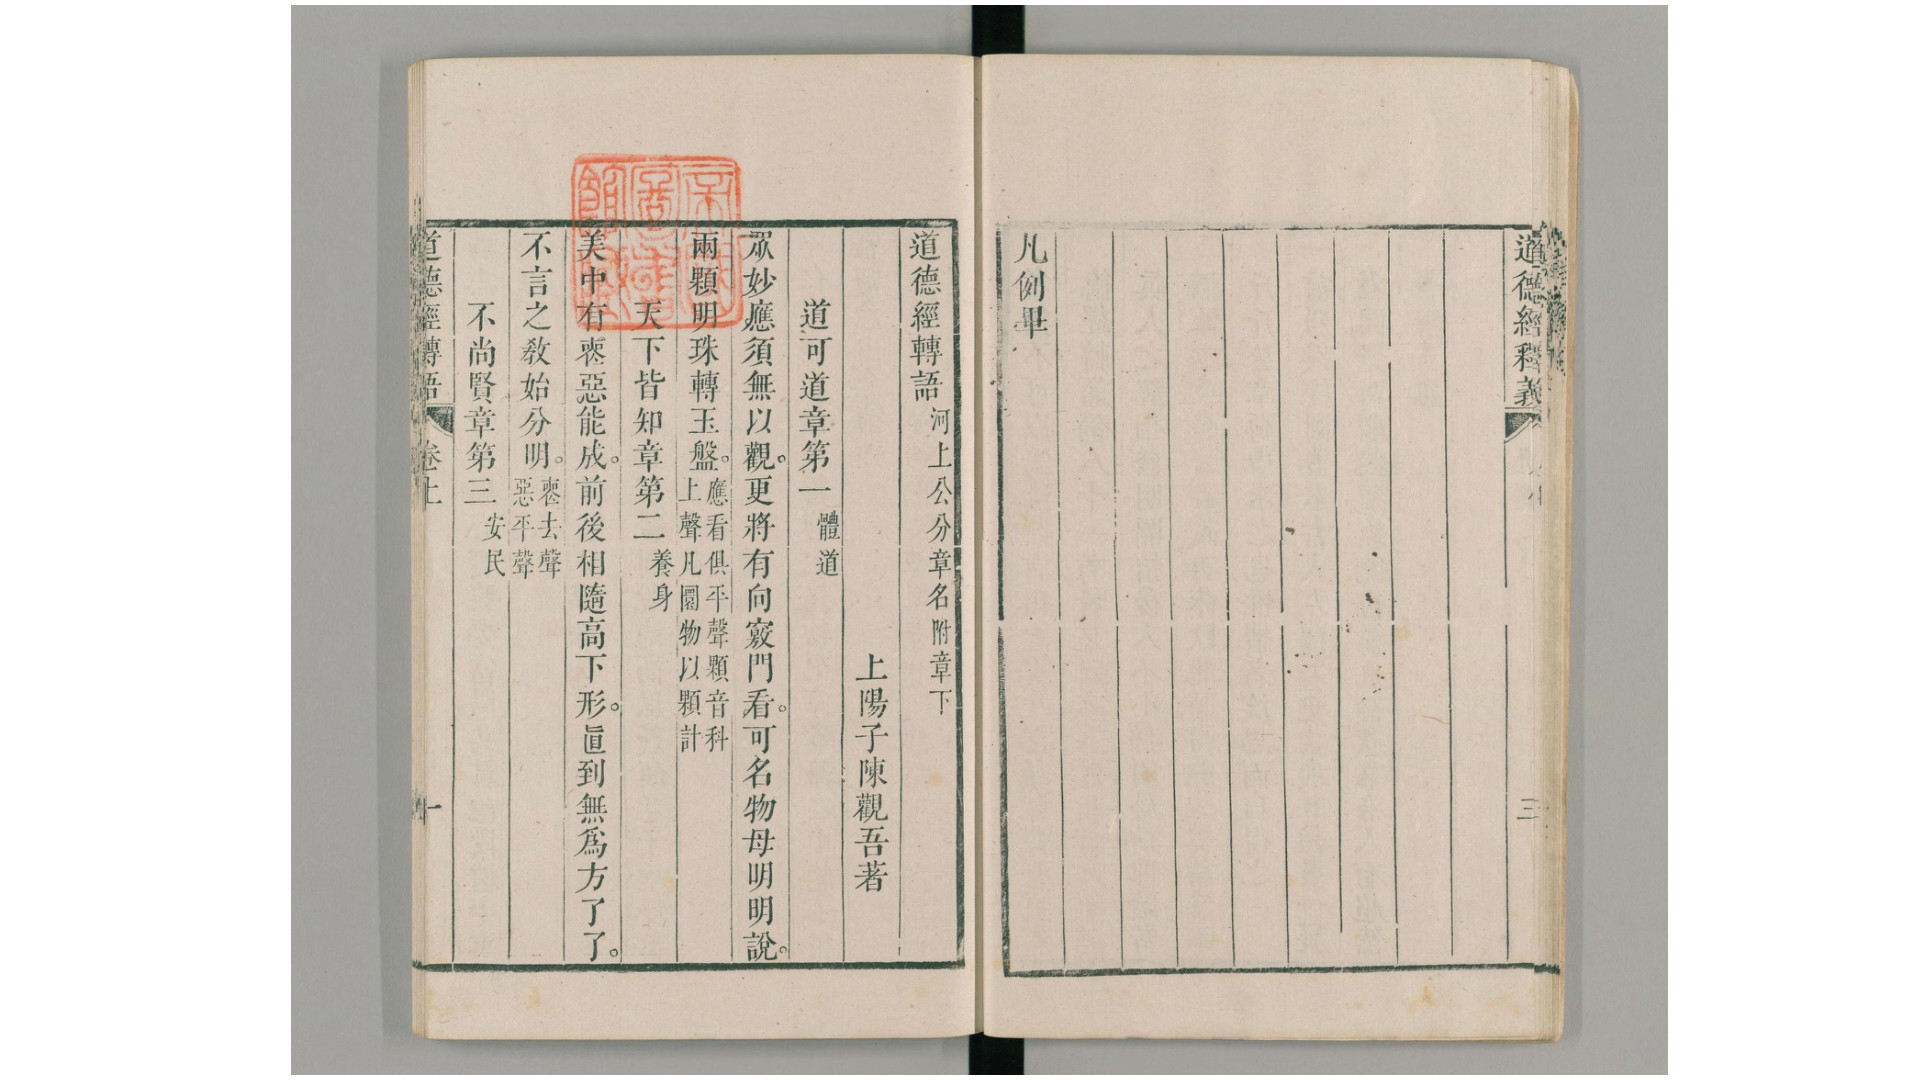 道德經釋義
三
凡例畢
道德經轉語 河上公分章名附章下
上陽子陳觀吾著
道可道章第一 體道
眾妙應須無以觀。更將有向竅門看。可名物母明明說。
兩顆明珠轉玉盤。應看俱平聲顆音科
上聲凡圜物以顆計
天下皆知章第二 養身
美中有𢙣惡能成。前後相隨高下形。眞到無爲方了了。
不言之敎始分明。𢙣去聲
惡平聲
不尚賢章第三 安民
道德經轉語 卷上 一